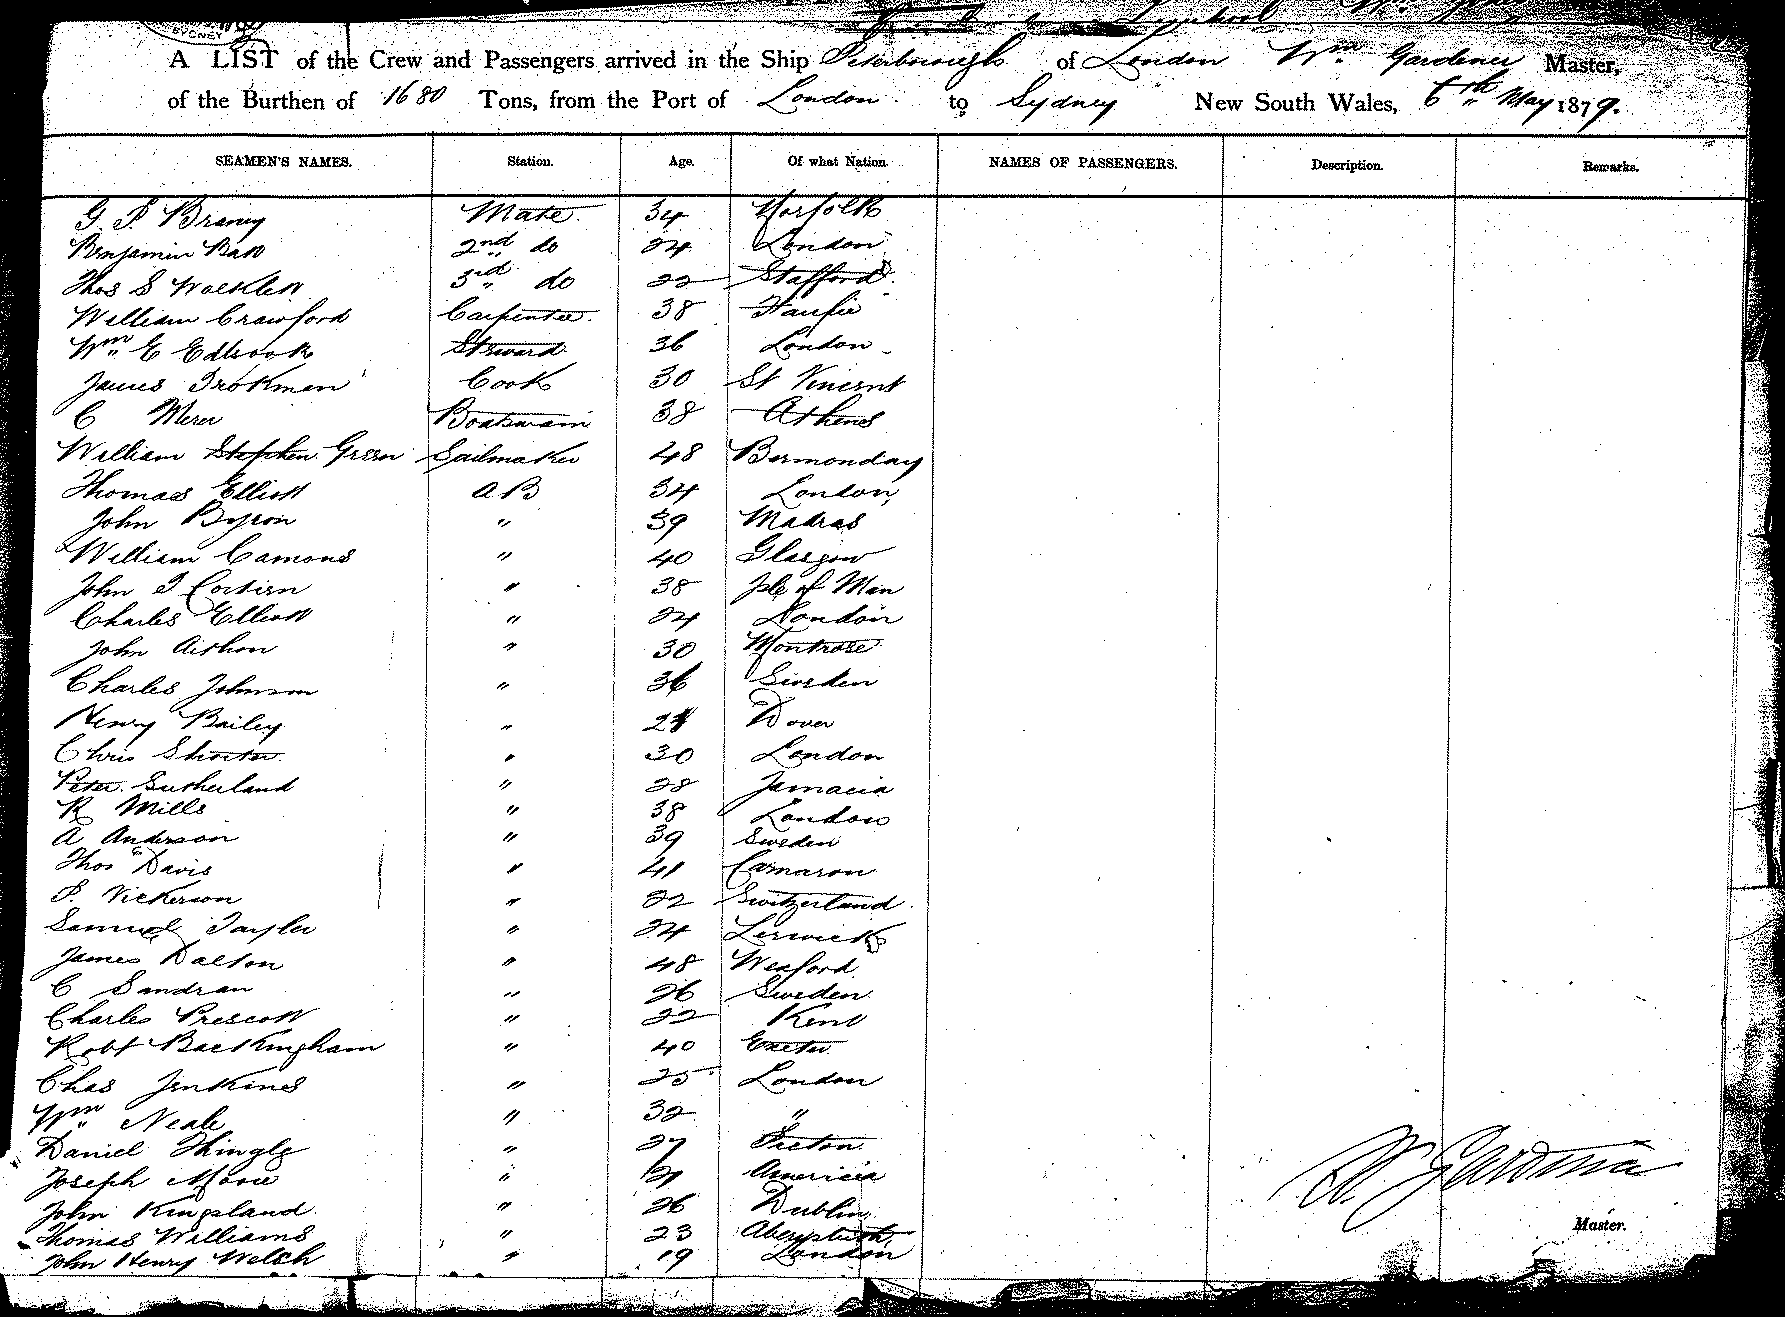 SYDNEY
A LIST of the Crew and Passengers arrived in the Ship Peterborough of London Wm Gardener Master,
of the Burthen of 1680 Tons, from the Port of London to Sydney New South Wales, 6th May 1879.
SEAMEN'S NAMES. Station. Age. Of what Nation. NAMES OF PASSENGERS. Description. Remarks.
G. P. Mate 34 Norfolk
Benjamin Ball 2nd do 24 London
Thos S 3rd do 22 Stafford
William Crawford Carpenter 38
Wm E Edbrook Steward 36 London
James Trokman Cook 30 St Vincent
C Merer Boatswain 38 Athens
William Stephen Green Sailmaker 48 Bermonday
Thomas Elliott A B 34 London
John Byron " 39 Madras
William Camons " 40 Glasgow
John T " 38 Isle of Man
Charles Elliott " 24 London
John " 30 Montrose
Charles Johnson " 36 Sweden
Henry Bailey " Dover
Chris Shorter " 30 London
Peter Sutherland " 28 Jamacia
R Mills " 38 London
A Anderson " 39 Sweden
Thos Davis " 41 Camaron
P. Vickerson " 22 Switzerland
Samuel Tayler " 24 Lerwick
James Dalton " 48 Wexford
C Sandran " 26 Sweden
Charles Prescott " 22 Kent
Robt Backingham " 40 Exeter
Chas Jenkines " 25 London
Wm Neale " 32 "
Daniel Thingle " 27 Picton
Joseph " 21 America
John Kingsland " 26 Dublin
Thomas Williams " 23
John Henry Welsh " 19 London
W Gardiner
Master.